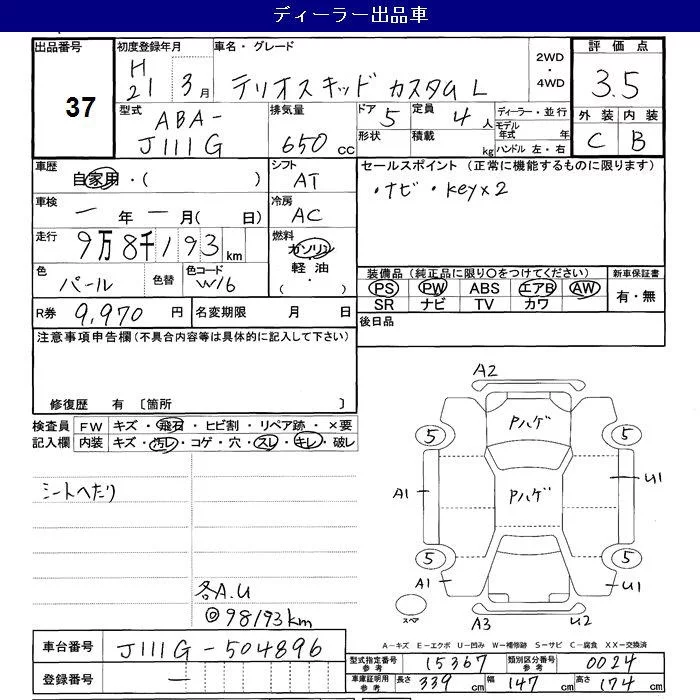 ディーラー出品車
出品番号 37
初度登録年月 H21 3月
車名・グレード テリオスキッド カスタムL
2WD・4WD
評価点 3.5
外装 C 内装 B
型式 ABA-J111G
排気量 650 cc
ドア 5 定員 4人
形状 積載 kg
ディーラー・並行
モデル年式 年
ハンドル 左・右
車歴 自家用・( )
シフト AT
車検 ー年ー月( 日)
冷房 AC
走行 9万8千193km
燃料 ガソリン 軽油 ( ・ )
色 パール 色替 色コード W16
R券 9,970 円 名変期限 月 日
セールスポイント(正常に機能するものに限ります)
・ナビ・keyx2
装備品(純正品に限り○をつけてください)
PS PW ABS エアB AW
SR ナビ TV カワ
新車保証書 有・無
後日品
注意事項申告欄(不具合内容等は具体的に記入して下さい)
修復歴 有 〔箇所 〕
検査員記入欄 FW キズ・飛石・ヒビ割・リペア跡・×要
内装 キズ・汚レ・コゲ・穴・スレ・キレ・破レ
シートへたり
各A.U
◎98193km
A2
Pハゲ
5 5
Pハゲ
A1 U1
5 5
A1 U1
スペア
A3 U2
A-キズ E-エクボ U-凹み W-補修跡 S-サビ C-腐食 XX-交換済
車台番号 J111G-504896
登録番号 ー
型式指定番号 参考 15367 類別区分番号 参考 0024
車庫証明用 参考 長さ 339 cm 幅 147 cm 高さ 174 cm